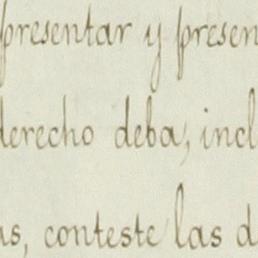 presentar y presen
derecho deba, incl
as, conteste las d